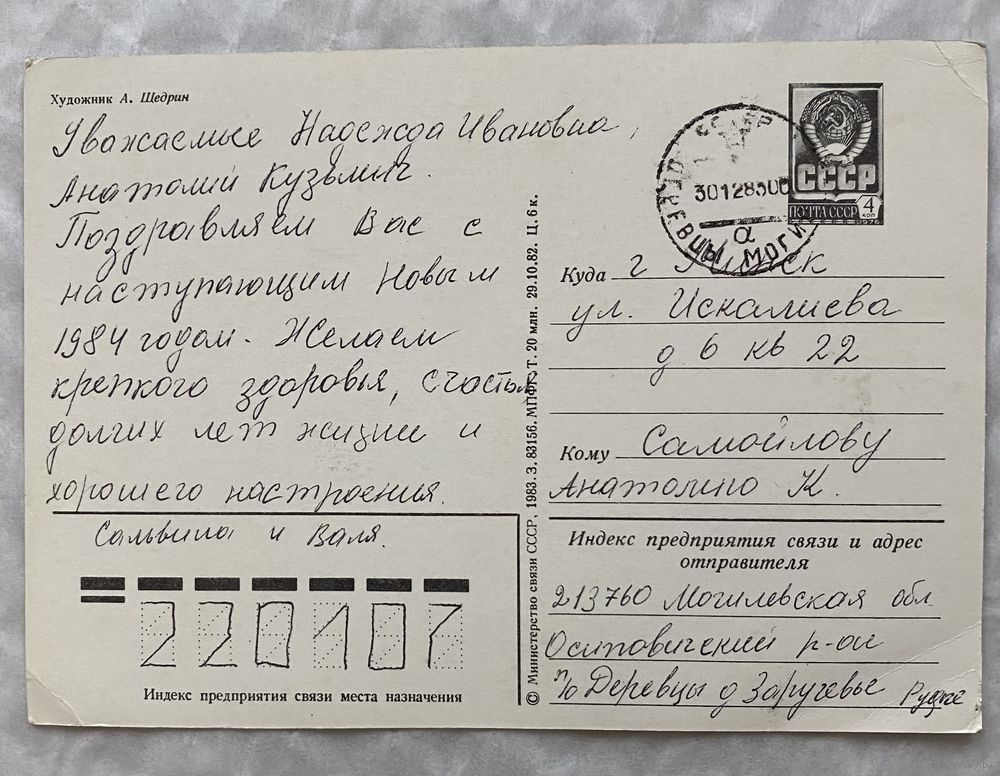 Художник А. Щедрин
Уважаемые Надежда Ивановна,
Анатолий Кузьмич.
Поздравляем Вас с
наступающим Новым
1984 годом. Желаем
крепкого здоровья, счастья,
долгих лет жизни и
хорошего настроения.
Сальвина и Валя.
220107
Индекс предприятия связи места назначения
© Министерство связи СССР, 1983. З. 83156. МПФГ. Т. 20 млн. 29.10.82. Ц. 6 к.
СССР
ПОЧТА СССР 4 коп
1976
30128300
а
ДЕРЕВЦЫ МОГИ
Куда г Минск
ул. Искалиева
д 6 кв 22
Кому Самойлову
Анатолию К.
Индекс предприятия связи и адрес
отправителя
213760 Могилевская обл
Осиповичский р-он
п/о Деревцы д Заручевье